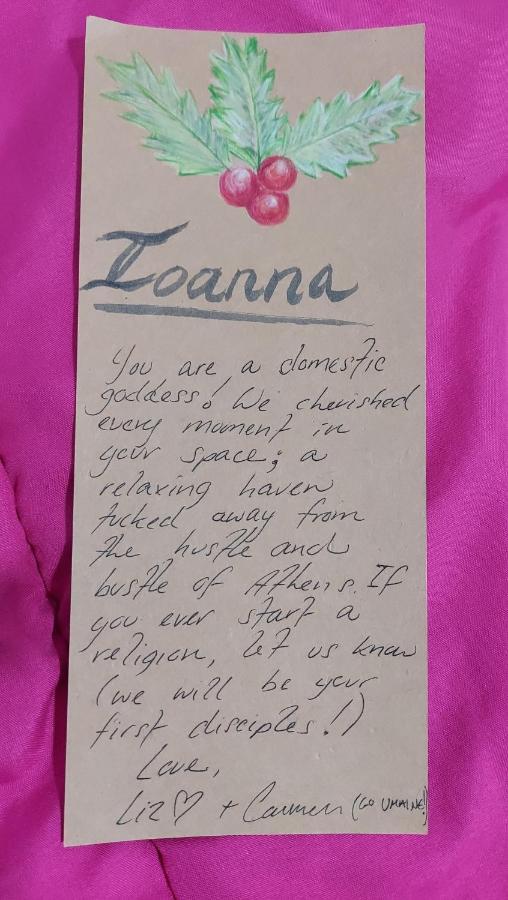 Ioanna
You are a domestic
goddess! We cherished
every moment in
your space; a
relaxing haven
tucked away from
the hustle and
bustle of Athens. If
you ever start a
religion, let us know
(we will be your
first disciples!)
Love,
Liz♡ + Carmen (GO UMAINE!)